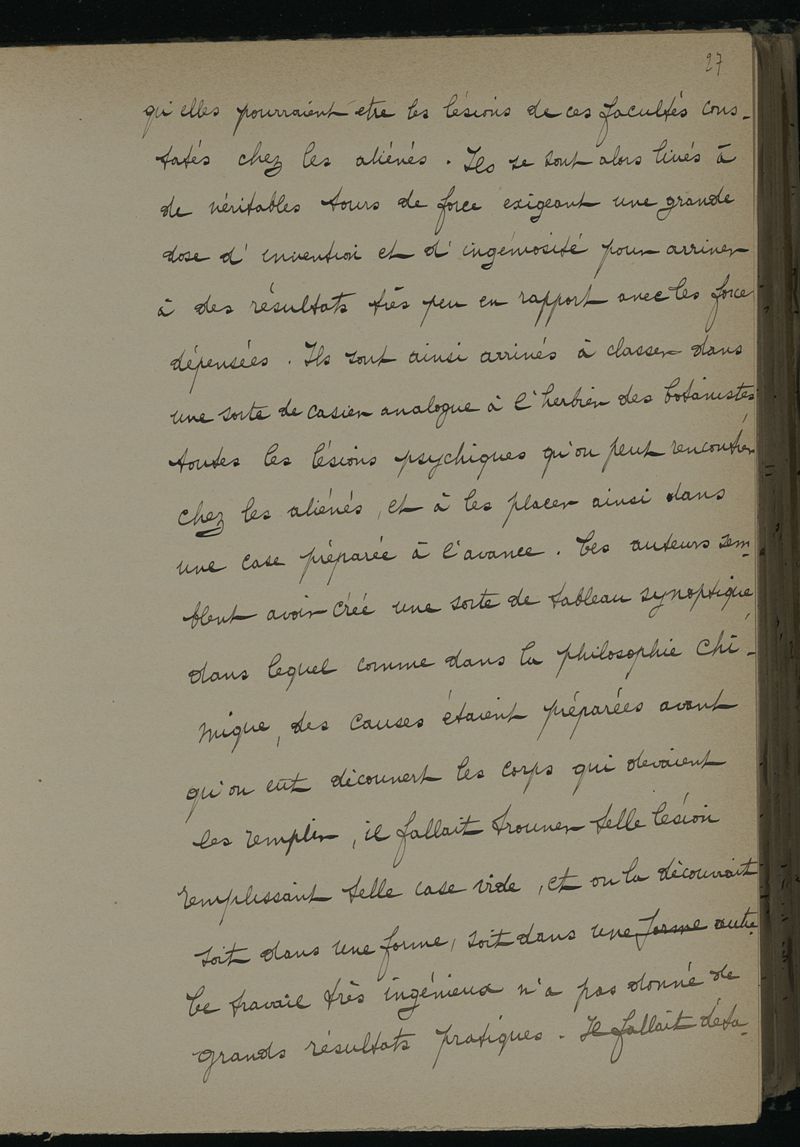 27
qu'elles pourraient etre les lésions de ces facultés cons-
tatés chez les aliénés. Ils se sont alors livrés à
de véritables tours de force exigeant une grande
dose d'invention et d'ingéniosité pour arriver
à des résultats très peu en rapport avec les force
dépensées. Ils sont ainsi arrivés à classer dans
une sorte de casier analogue à l'herbier des botanistes
toutes les lésions psychiques qu'on peut rencontrer
chez les aliénés, et à les placer ainsi dans
une case préparée à l'avance. Ces auteurs sem-
blent avoir créé une sorte de tableau synoptique,
dans lequel comme dans la philosophie chi-
mique, des causes étaient préparées avant
qu'on eût découvert les corps qui devaient
les remplir, il fallait trouver telle lésion
remplissant telle case vide, et on la découvrait
soit dans une forme, soit dans une forme autre
Ce travail très ingénieux n'a pas donné de
grands résultats pratiques. Il fallait déta-